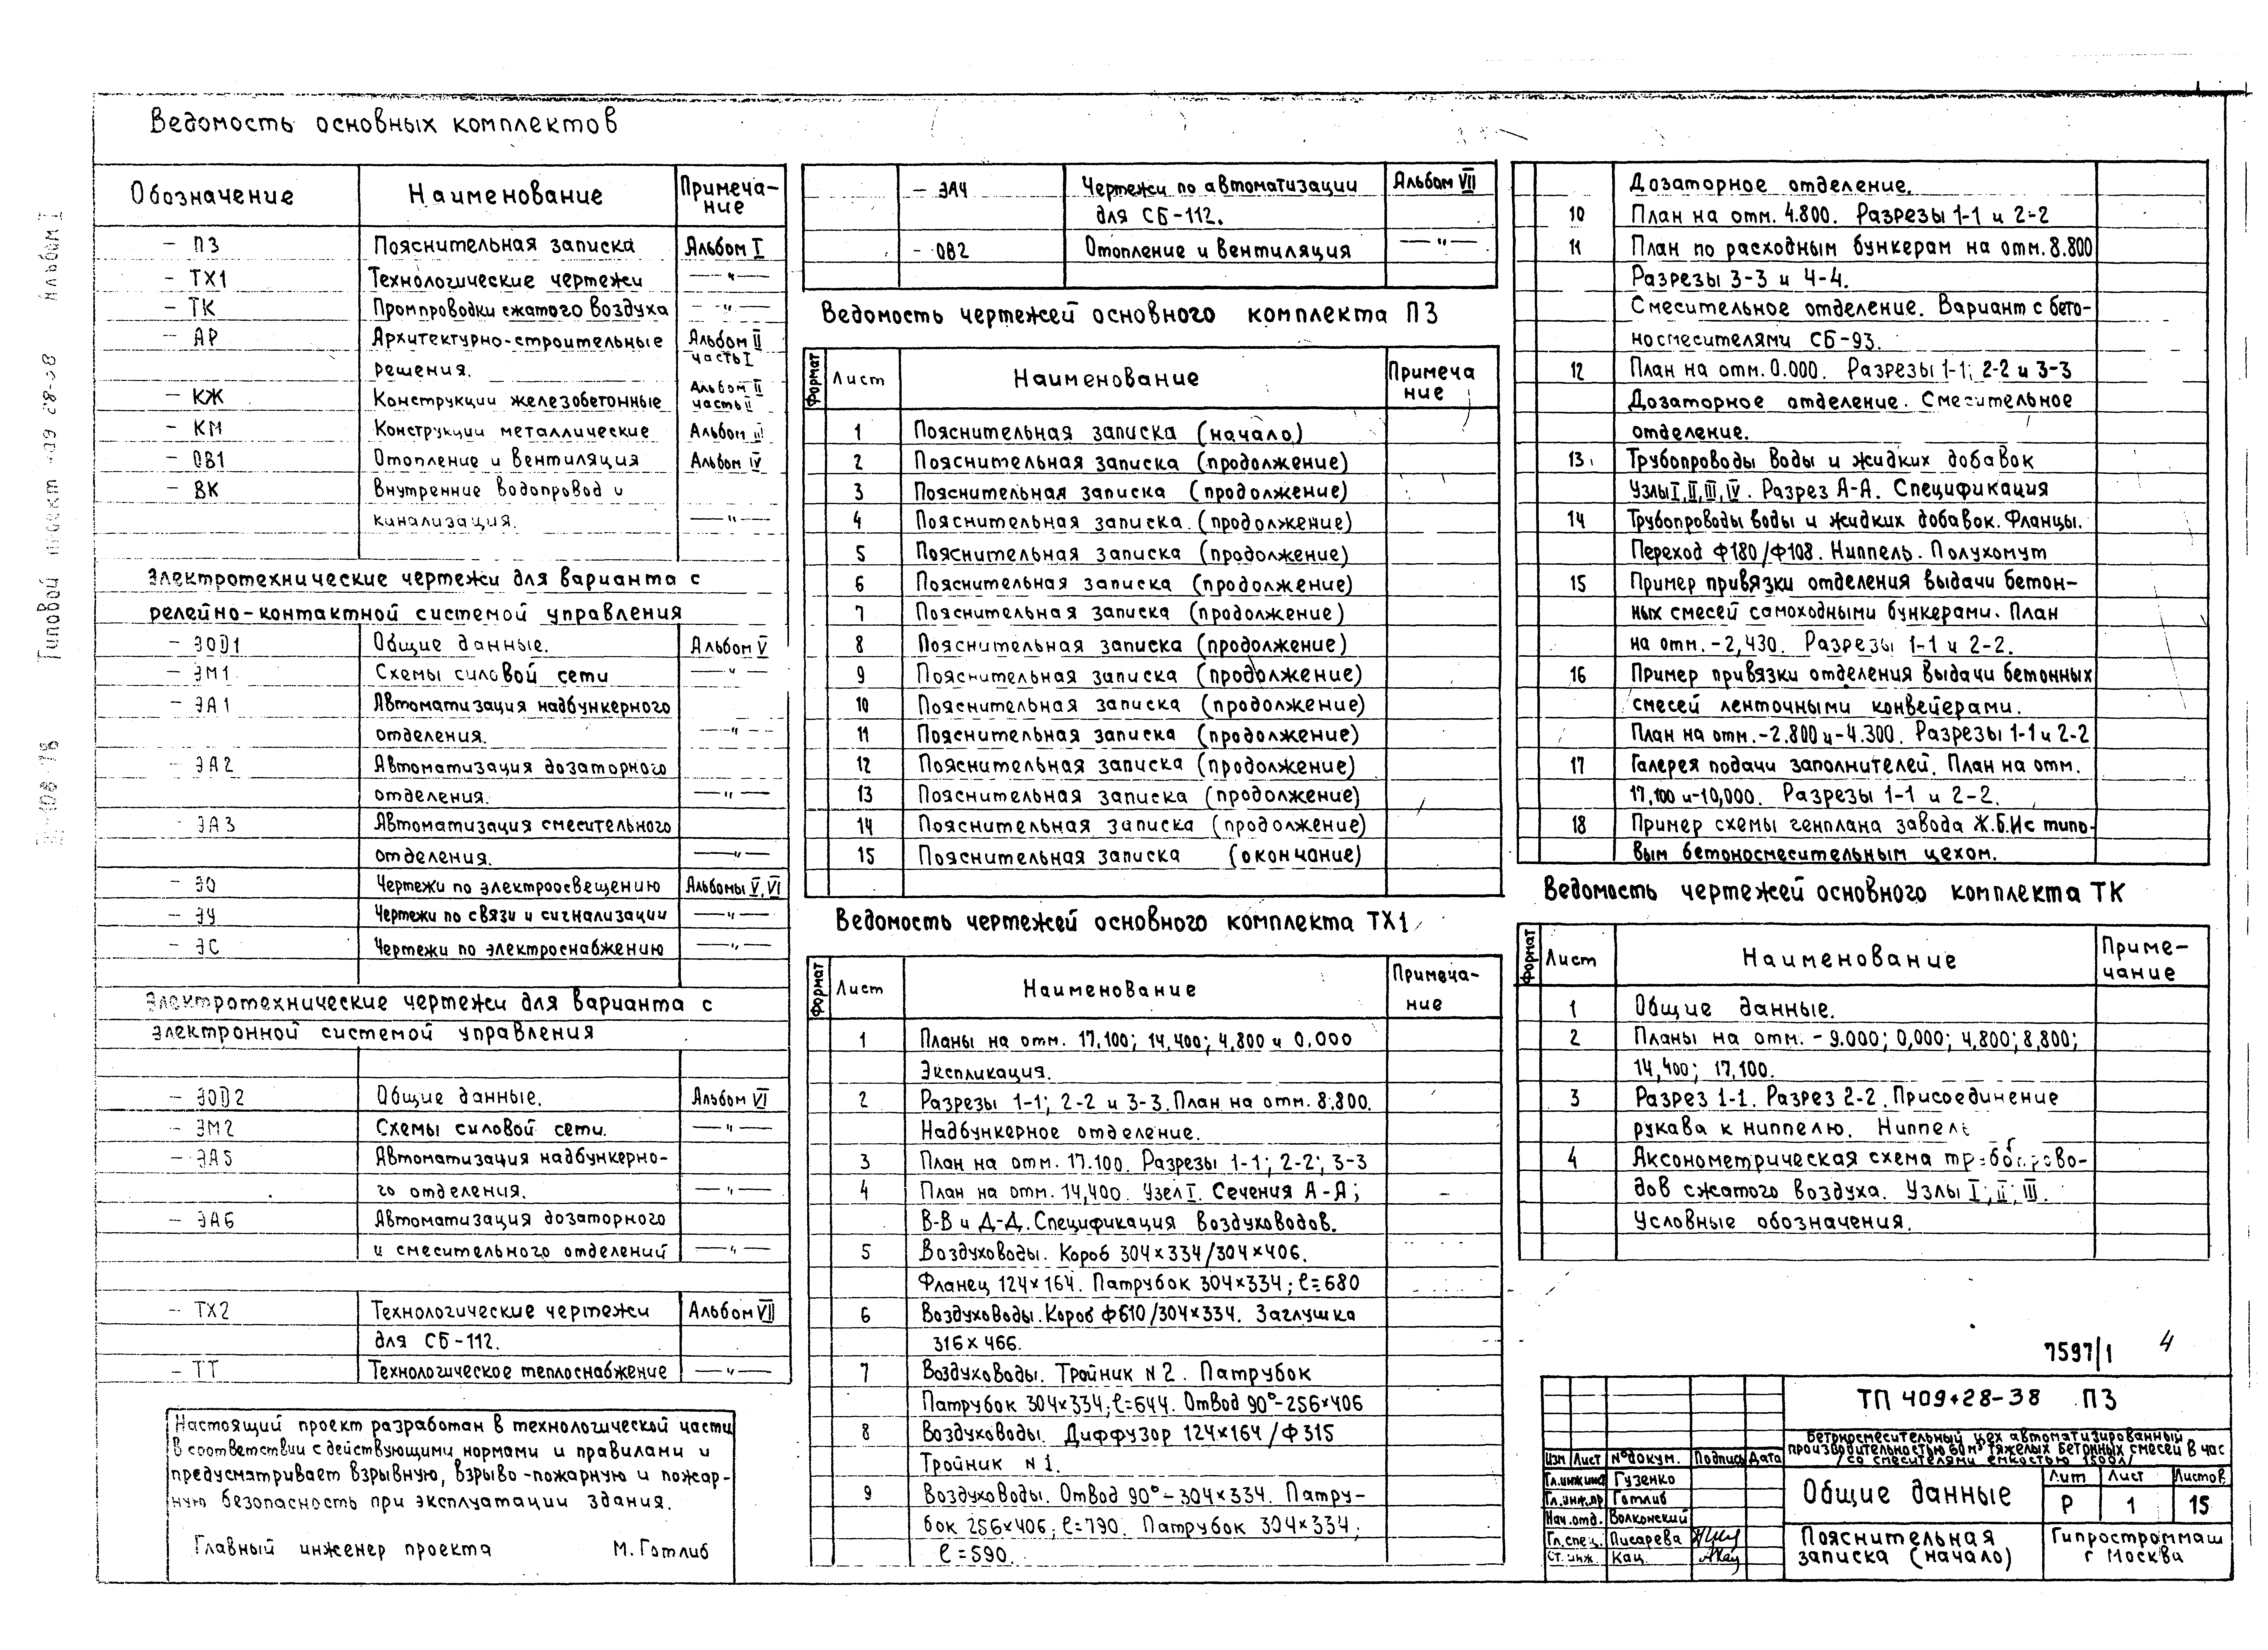 Ведомость основных комплектов
Обозначение Наименование Примеча-
ние
- ПЗ Пояснительная записка Альбом I
- ТХ1 Технологические чертежи —"—
- ТК Промпроводки сжатого воздуха —"—
- АР Архитектурно-строительные Альбом II
решения. часть I
- КЖ Конструкции железобетонные Альбом II часть II
- КМ Конструкции металлические Альбом III
- ОВ1 Отопление и вентиляция Альбом IV
- ВК Внутренние водопровод и
канализация. —"—
Электротехнические чертежи для варианта с
релейно-контактной системой управления
- ЭОД1 Общие данные. Альбом V
- ЭМ1 Схемы силовой сети —"—
- ЭА1 Автоматизация надбункерного
отделения. —"—
- ЭА2 Автоматизация дозаторного
отделения. —"—
- ЭА3 Автоматизация смесительного
отделения. —"—
- ЭО Чертежи по электроосвещению Альбомы V, VI
- ЭУ Чертежи по связи и сигнализации —"—
- ЭС Чертежи по электроснабжению —"—
Электротехнические чертежи для варианта с
электронной системой управления
- ЭОД2 Общие данные. Альбом VI
- ЭМ2 Схемы силовой сети. —"—
- ЭА5 Автоматизация надбункерно-
го отделения. —"—
- ЭА6 Автоматизация дозаторного
и смесительного отделений —"—
- ТХ2 Технологические чертежи Альбом VII
для СБ-112.
- ТТ Технологическое теплоснабжение —"—
Настоящий проект разработан в технологической части
в соответствии с действующими нормами и правилами и
предусматривает взрывную, взрыво-пожарную и пожар-
ную безопасность при эксплуатации здания.
Главный инженер проекта М. Готлиб
- ЭА4 Чертежи по автоматизации Альбом VII
для СБ-112.
- ОВ2 Отопление и вентиляция —"—
Ведомость чертежей основного комплекта ПЗ
Формат Лист Наименование Примеча
ние
1 Пояснительная записка (начало)
2 Пояснительная записка (продолжение)
3 Пояснительная записка (продолжение)
4 Пояснительная записка (продолжение)
5 Пояснительная записка (продолжение)
6 Пояснительная записка (продолжение)
7 Пояснительная записка (продолжение)
8 Пояснительная записка (продолжение)
9 Пояснительная записка (продолжение)
10 Пояснительная записка (продолжение)
11 Пояснительная записка (продолжение)
12 Пояснительная записка (продолжение)
13 Пояснительная записка (продолжение)
14 Пояснительная записка (продолжение)
15 Пояснительная записка (окончание)
Ведомость чертежей основного комплекта ТХ1
Формат Лист Наименование Примеча-
ние
1 Планы на отм. 17,100; 14,400; 4,800 и 0,000
Экспликация.
2 Разрезы 1-1; 2-2 и 3-3. План на отм. 8.800.
Надбункерное отделение.
3 План на отм. 17.100. Разрезы 1-1; 2-2; 3-3
4 План на отм. 14,400. Узел I. Сечения А-А;
В-В и Д-Д. Спецификация воздуховодов.
5 Воздуховоды. Короб 304×334/304×406.
Фланец 124×164. Патрубок 304×334; ℓ=680
6 Воздуховоды. Короб Ф610/304×334. Заглушка
316×466.
7 Воздуховоды. Тройник N2. Патрубок
Патрубок 304×334; ℓ=644. Отвод 90°-256×406
8 Воздуховоды. Диффузор 124×164/Ф315
Тройник N1.
9 Воздуховоды. Отвод 90°-304×334. Патру-
бок 256×406; ℓ=790. Патрубок 304×334;
ℓ=590.
Дозаторное отделение.
10 План на отм. 4.800. Разрезы 1-1 и 2-2
11 План по расходным бункерам на отм. 8.800
Разрезы 3-3 и 4-4.
Смесительное отделение. Вариант с бето-
носмесителями СБ-93.
12 План на отм. 0.000. Разрезы 1-1; 2-2 и 3-3
Дозаторное отделение. Смесительное
отделение.
13 Трубопроводы воды и жидких добавок
Узлы I, II, III, IV. Разрез А-А. Спецификация
14 Трубопроводы воды и жидких добавок. Фланцы.
Переход Ф180/Ф108. Ниппель. Полухомут
15 Пример привязки отделения выдачи бетон-
ных смесей самоходными бункерами. План
на отм. -2,430. Разрезы 1-1 и 2-2.
16 Пример привязки отделения выдачи бетонных
смесей ленточными конвейерами.
План на отм. -2.800 и -4.300. Разрезы 1-1 и 2-2
17 Галерея подачи заполнителей. План на отм.
17,100 и -10,000. Разрезы 1-1 и 2-2.
18 Пример схемы генплана завода Ж.Б.И с типо-
вым бетоносмесительным цехом.
Ведомость чертежей основного комплекта ТК
Формат Лист Наименование Приме-
чание
1 Общие данные.
2 Планы на отм. -9.000; 0,000; 4,800; 8,800;
14,400; 17,100.
3 Разрез 1-1. Разрез 2-2. Присоединение
рукава к ниппелю. Ниппель
4 Аксонометрическая схема трубопрово-
дов сжатого воздуха. Узлы I; II; III.
Условные обозначения.
7597/1 4
ТП 409-28-38 ПЗ
Бетоносмесительный цех автоматизированный
производительностью 60 м³ тяжелых бетонных смесей в час
/со смесителями емкостью 1500л/
Изм Лист № докум. Подпись Дата
Гл.инж.инст Гузенко
Гл.инж.пр Готлиб
Нач.отд. Волконский
Гл.спец. Писарева
Ст.инж. Кац
Общие данные
Лит Лист Листов
Р 1 15
Пояснительная
записка (начало)
Гипростроммаш
г Москва
Альбом I
Типовой проект 409-28-38